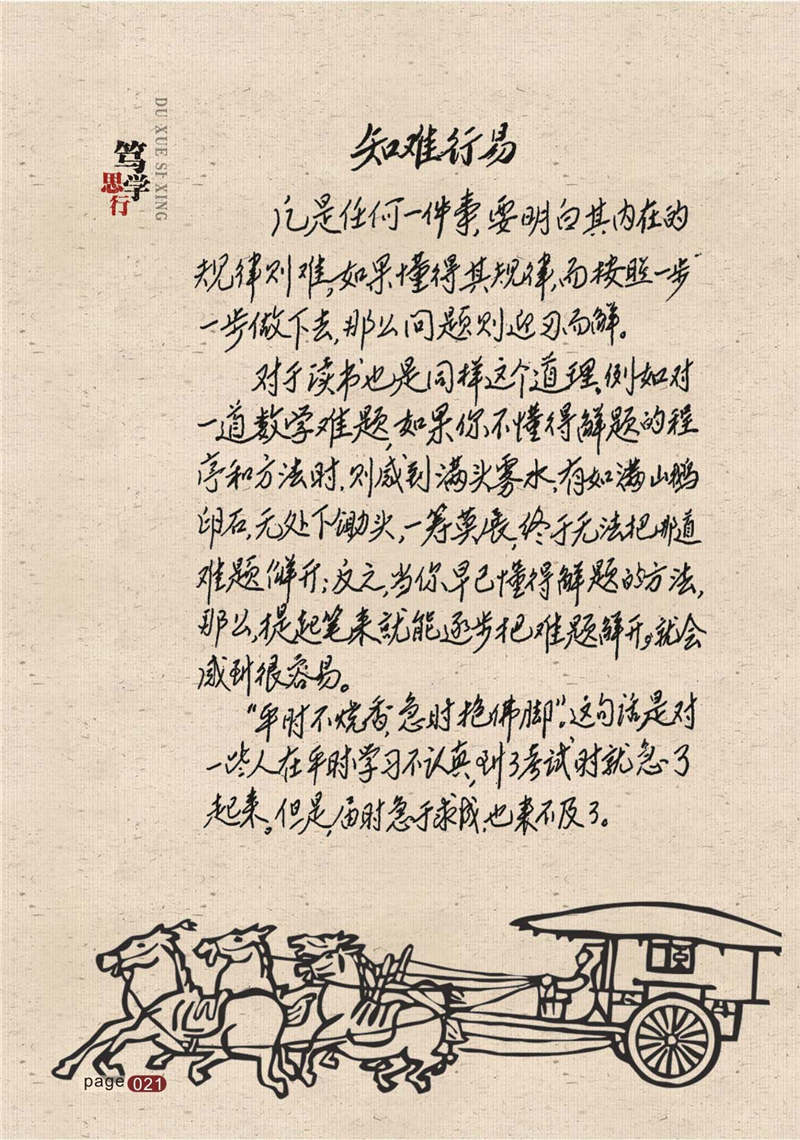 DU XUE SI XING
笃学
思行
知难行易
凡是任何一件事,要明白其内在的
规律则难,如果懂得其规律,而按照一步
一步做下去,那么问题则迎刃而解。
对于读书也是同样这个道理、例如对
一道数学难题,如果你不懂得解题的程
序和方法时,则感到满头雾水,有如满山鹅
卵石,无处下锄头,一筹莫展,终于无法把那道
难题解开;反之,当你早已懂得解题的方法,
那么,提起笔来就能逐步把难题解开,就会
感到很容易。
“平时不烧香,急时抱佛脚”,这句话,是对
一些人在平时学习不认真,到了考试时就急了
起来。但是,届时急于求成,也来不及了。
page 021